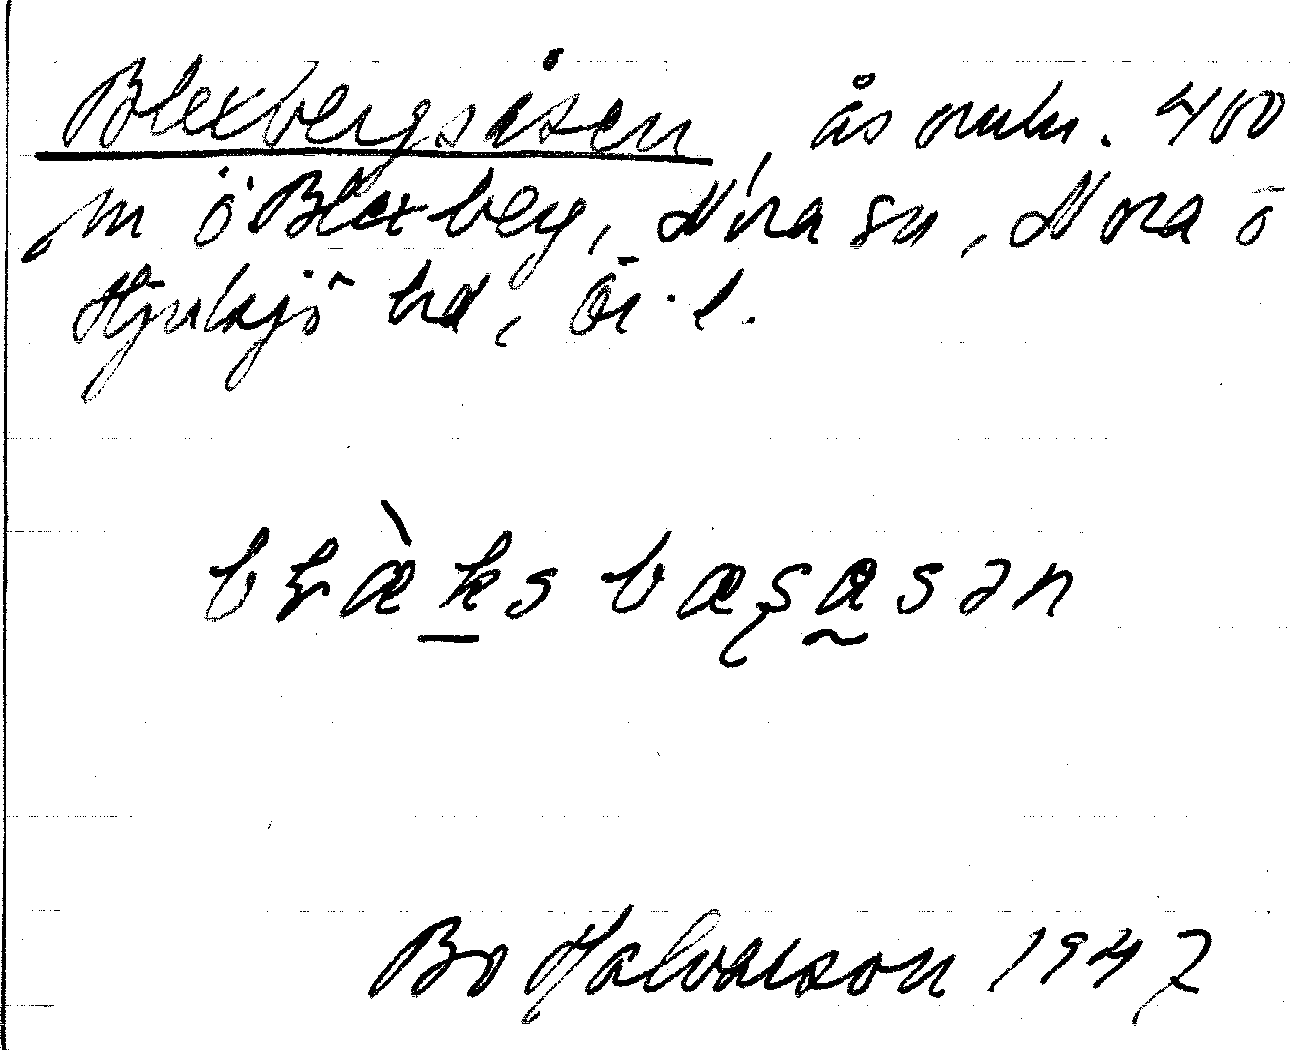 Blexbergsåsen, ås omkr. 400
m ö Blexberg, Nora sn, Nora o
Hjulsjö hd, Ör. l.
bɭæ̀ks bæʂa̰sən
Bo Halvarson 1947